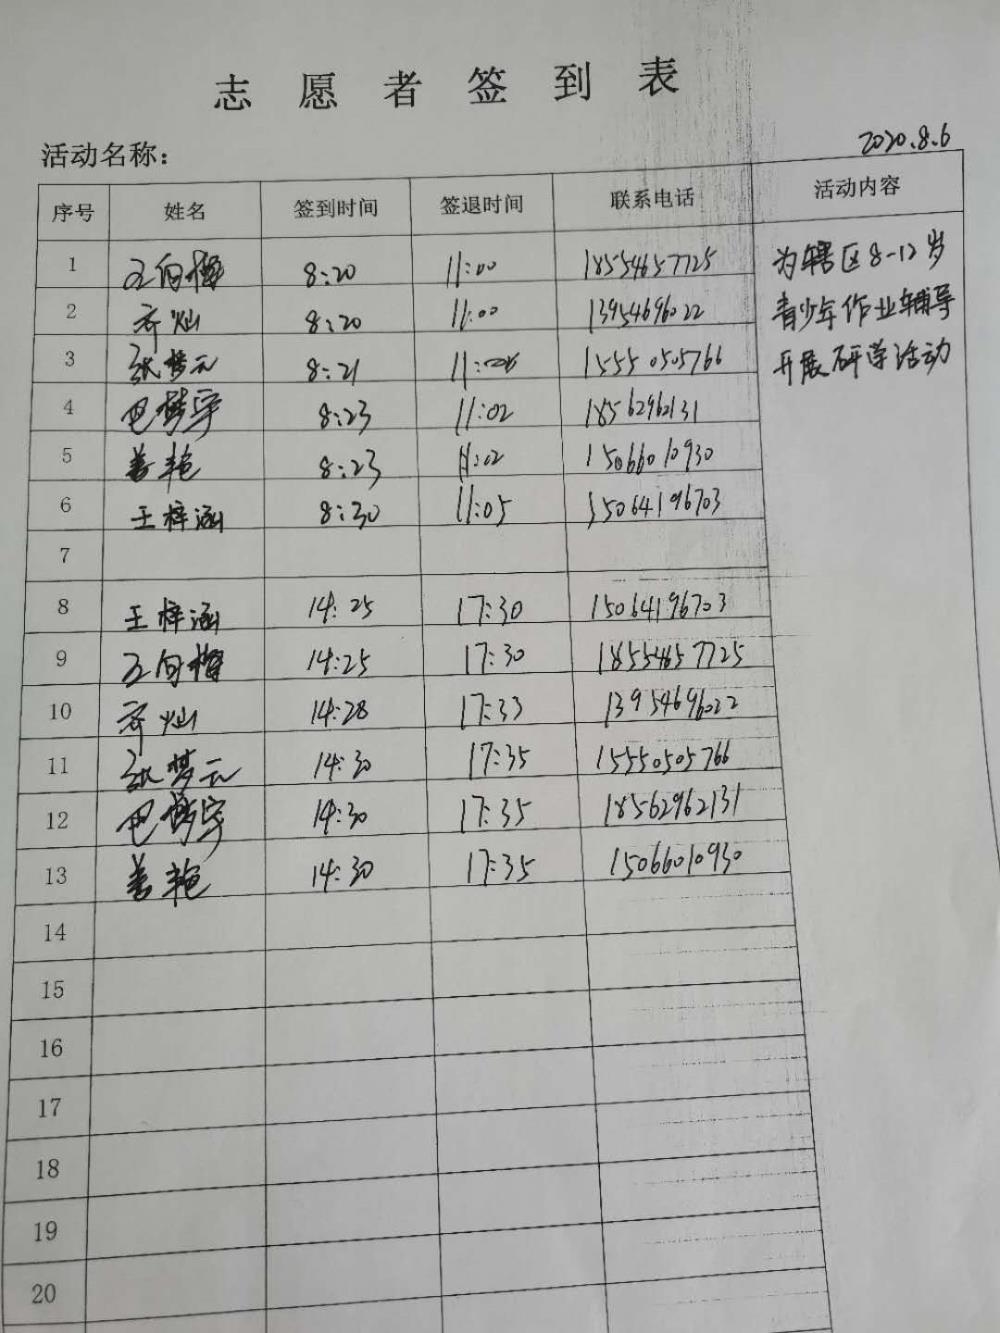 志愿者签到表
2020.8.6
活动名称：
序号 姓名 签到时间 签退时间 联系电话 活动内容
1 8:20 11:00 18554657725 为辖区8-12岁
2 齐灿 8:20 11:00 13954696022 青少年作业辅导
3 张梦云 8:21 15550505766 开展研学活动
4 8:23 11:02 18562962131
5 8:23 11:02 15066010930
6 王梓涵 8:30 11:05 15064196703
7
8 王梓涵 14:25 17:30 15064196703
9 14:25 17:30 18554657725
10 齐灿 14:28 17:33 13954696022
11 张梦云 14:30 17:35 15550505766
12 14:30 17:35 18562962131
13 14:30 17:35 15066010930
14
15
16
17
18
19
20